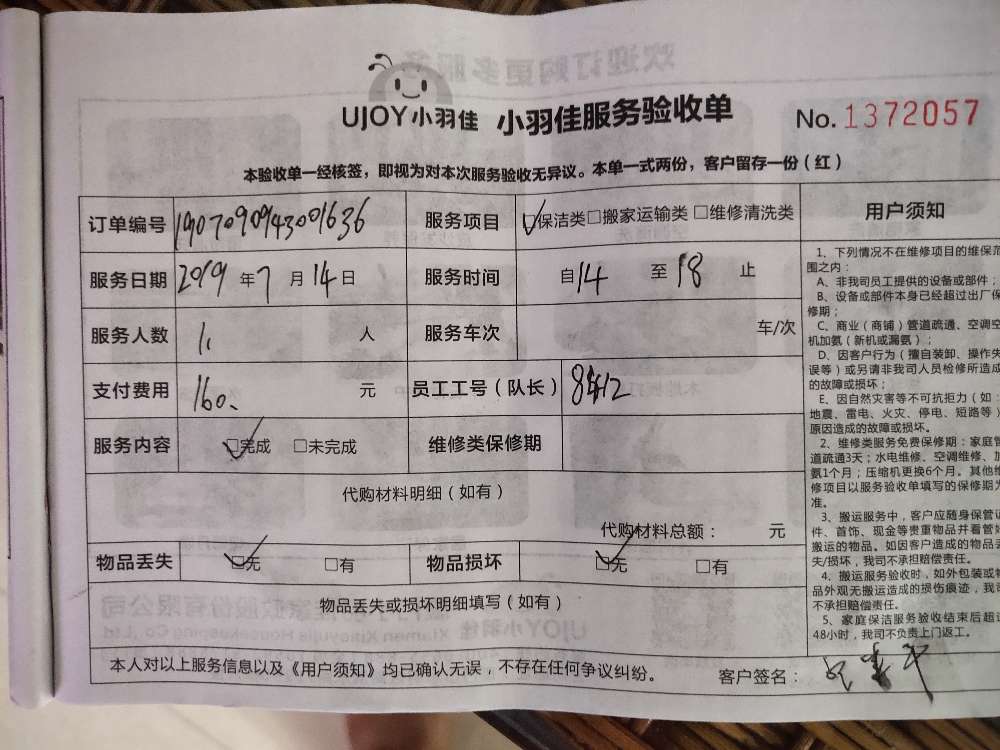 UJOY小羽佳 小羽佳服务验收单 No.1372057
本验收单一经核签，即视为对本次服务验收无异议。本单一式两份，客户留存一份（红）
订单编号 1907090943001636 服务项目 ☑保洁类□搬家运输类□维修清洗类
服务日期 2019年7月14日 服务时间 自14至18止
服务人数 1. 人 服务车次 车/次
支付费用 160. 元 员工工号（队长）
服务内容 ☑完成 □未完成 维修类保修期
代购材料明细（如有）
代购材料总额： 元
物品丢失 ☑无 □有 物品损坏 ☑无 □有
物品丢失或损坏明细填写（如有）
本人对以上服务信息以及《用户须知》均已确认无误，不存在任何争议纠纷。 客户签名：
用户须知
1、下列情况不在维修项目的维保范
围之内：
A、非我司员工提供的设备或部件；
B、设备或部件本身已经超过出厂保
修期；
C、商业（商铺）管道疏通、空调空
机加氨（新机或漏氨）；
D、因客户行为（擅自装卸、操作失
误等）或另请非我司人员检修所造成
的故障或损坏；
E、因自然灾害等不可抗拒力（如：
地震、雷电、火灾、停电、短路等）
原因造成的故障或损坏。
2、维修类服务免费保修期：家庭管
道疏通3天；水电维修、空调维修、加
氨1个月；压缩机更换6个月。其他维
修项目以服务验收单填写的保修期为
准。
3、搬运服务中，客户应随身保管证
件、首饰、现金等贵重物品并看管好
搬运的物品。如因客户造成的物品丢
失/损坏，我司不承担赔偿责任。
4、搬运服务验收时，如外包装或物
品外观无搬运造成的损伤痕迹，我司
不承担赔偿责任。
5、家庭保洁服务验收结束后超过
48小时，我司不负责上门返工。